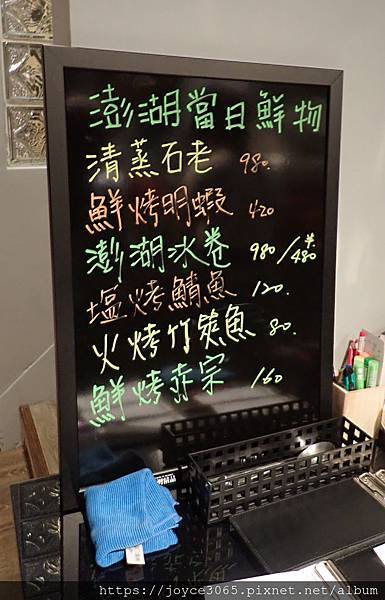 澎湖當日鮮物
清蒸石老 980.
鮮烤明蝦 420
澎湖冰卷 980/半480
塩烤鯖魚 120.
火烤竹筴魚 80.
鮮烤赤宗 160
https://joyce3065.pixnet.net/album